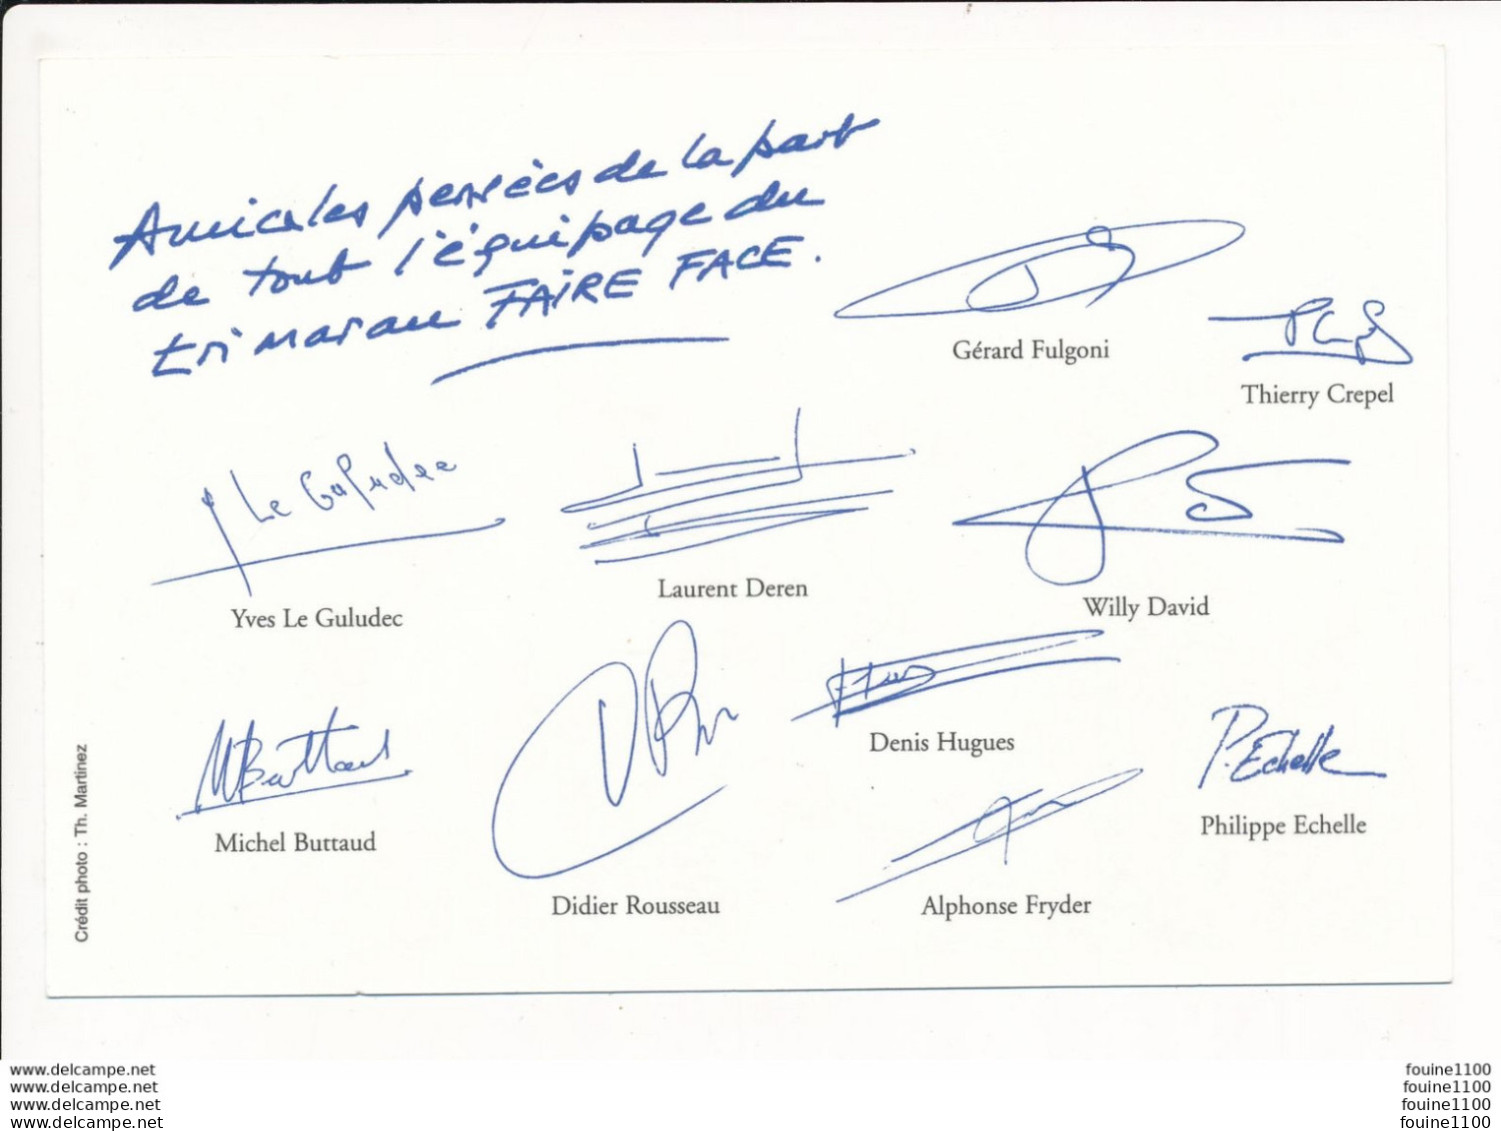 Amicales pensées de la part
de tout l'équipage du
trimaran FAIRE FACE.
Gérard Fulgoni
Thierry Crepel
Le Guludec
Yves Le Guludec
Laurent Deren
Willy David
MButtaud
Michel Buttaud
Didier Rousseau
Denis Hugues
Alphonse Fryder
P. Echelle
Philippe Echelle
Crédit photo : Th. Martinez
www.delcampe.net
www.delcampe.net
www.delcampe.net
www.delcampe.net
fouine1100
fouine1100
fouine1100
fouine1100